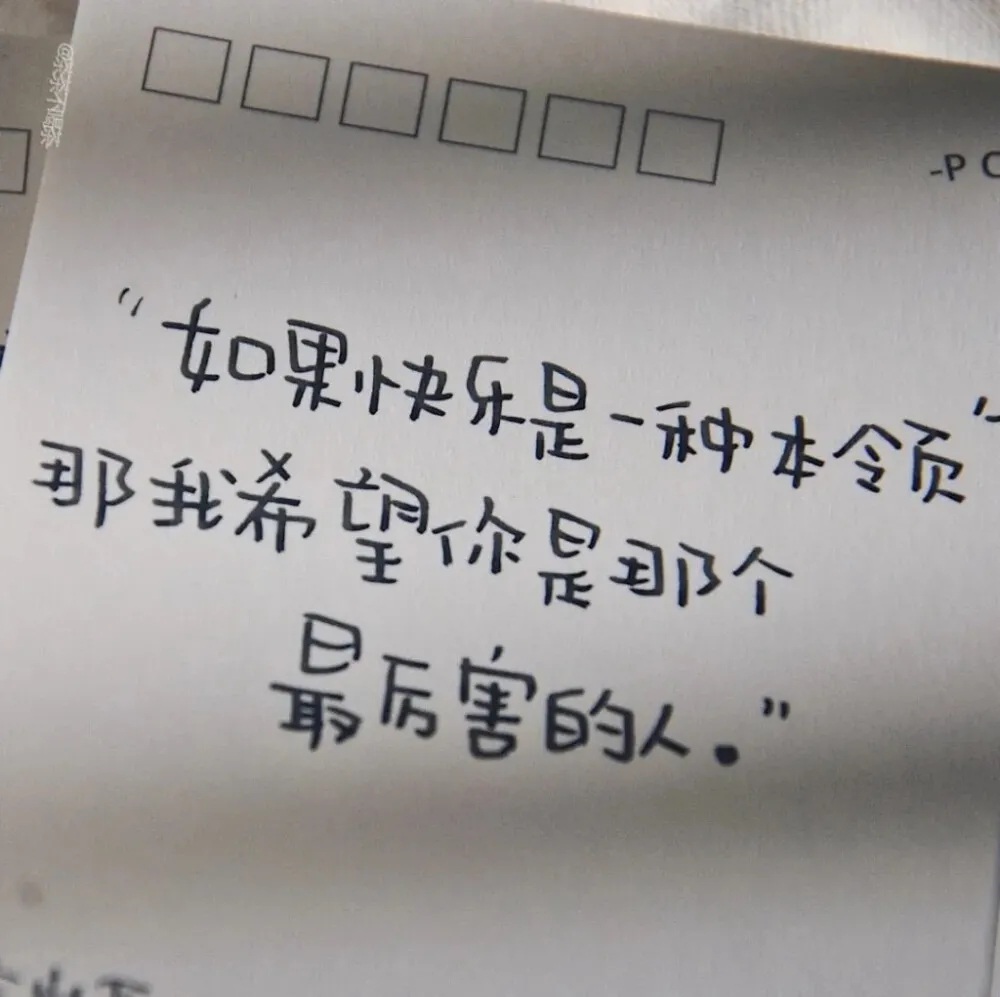 -P
“如果快乐是一种本领
那我希望你是那个
最厉害的人.”